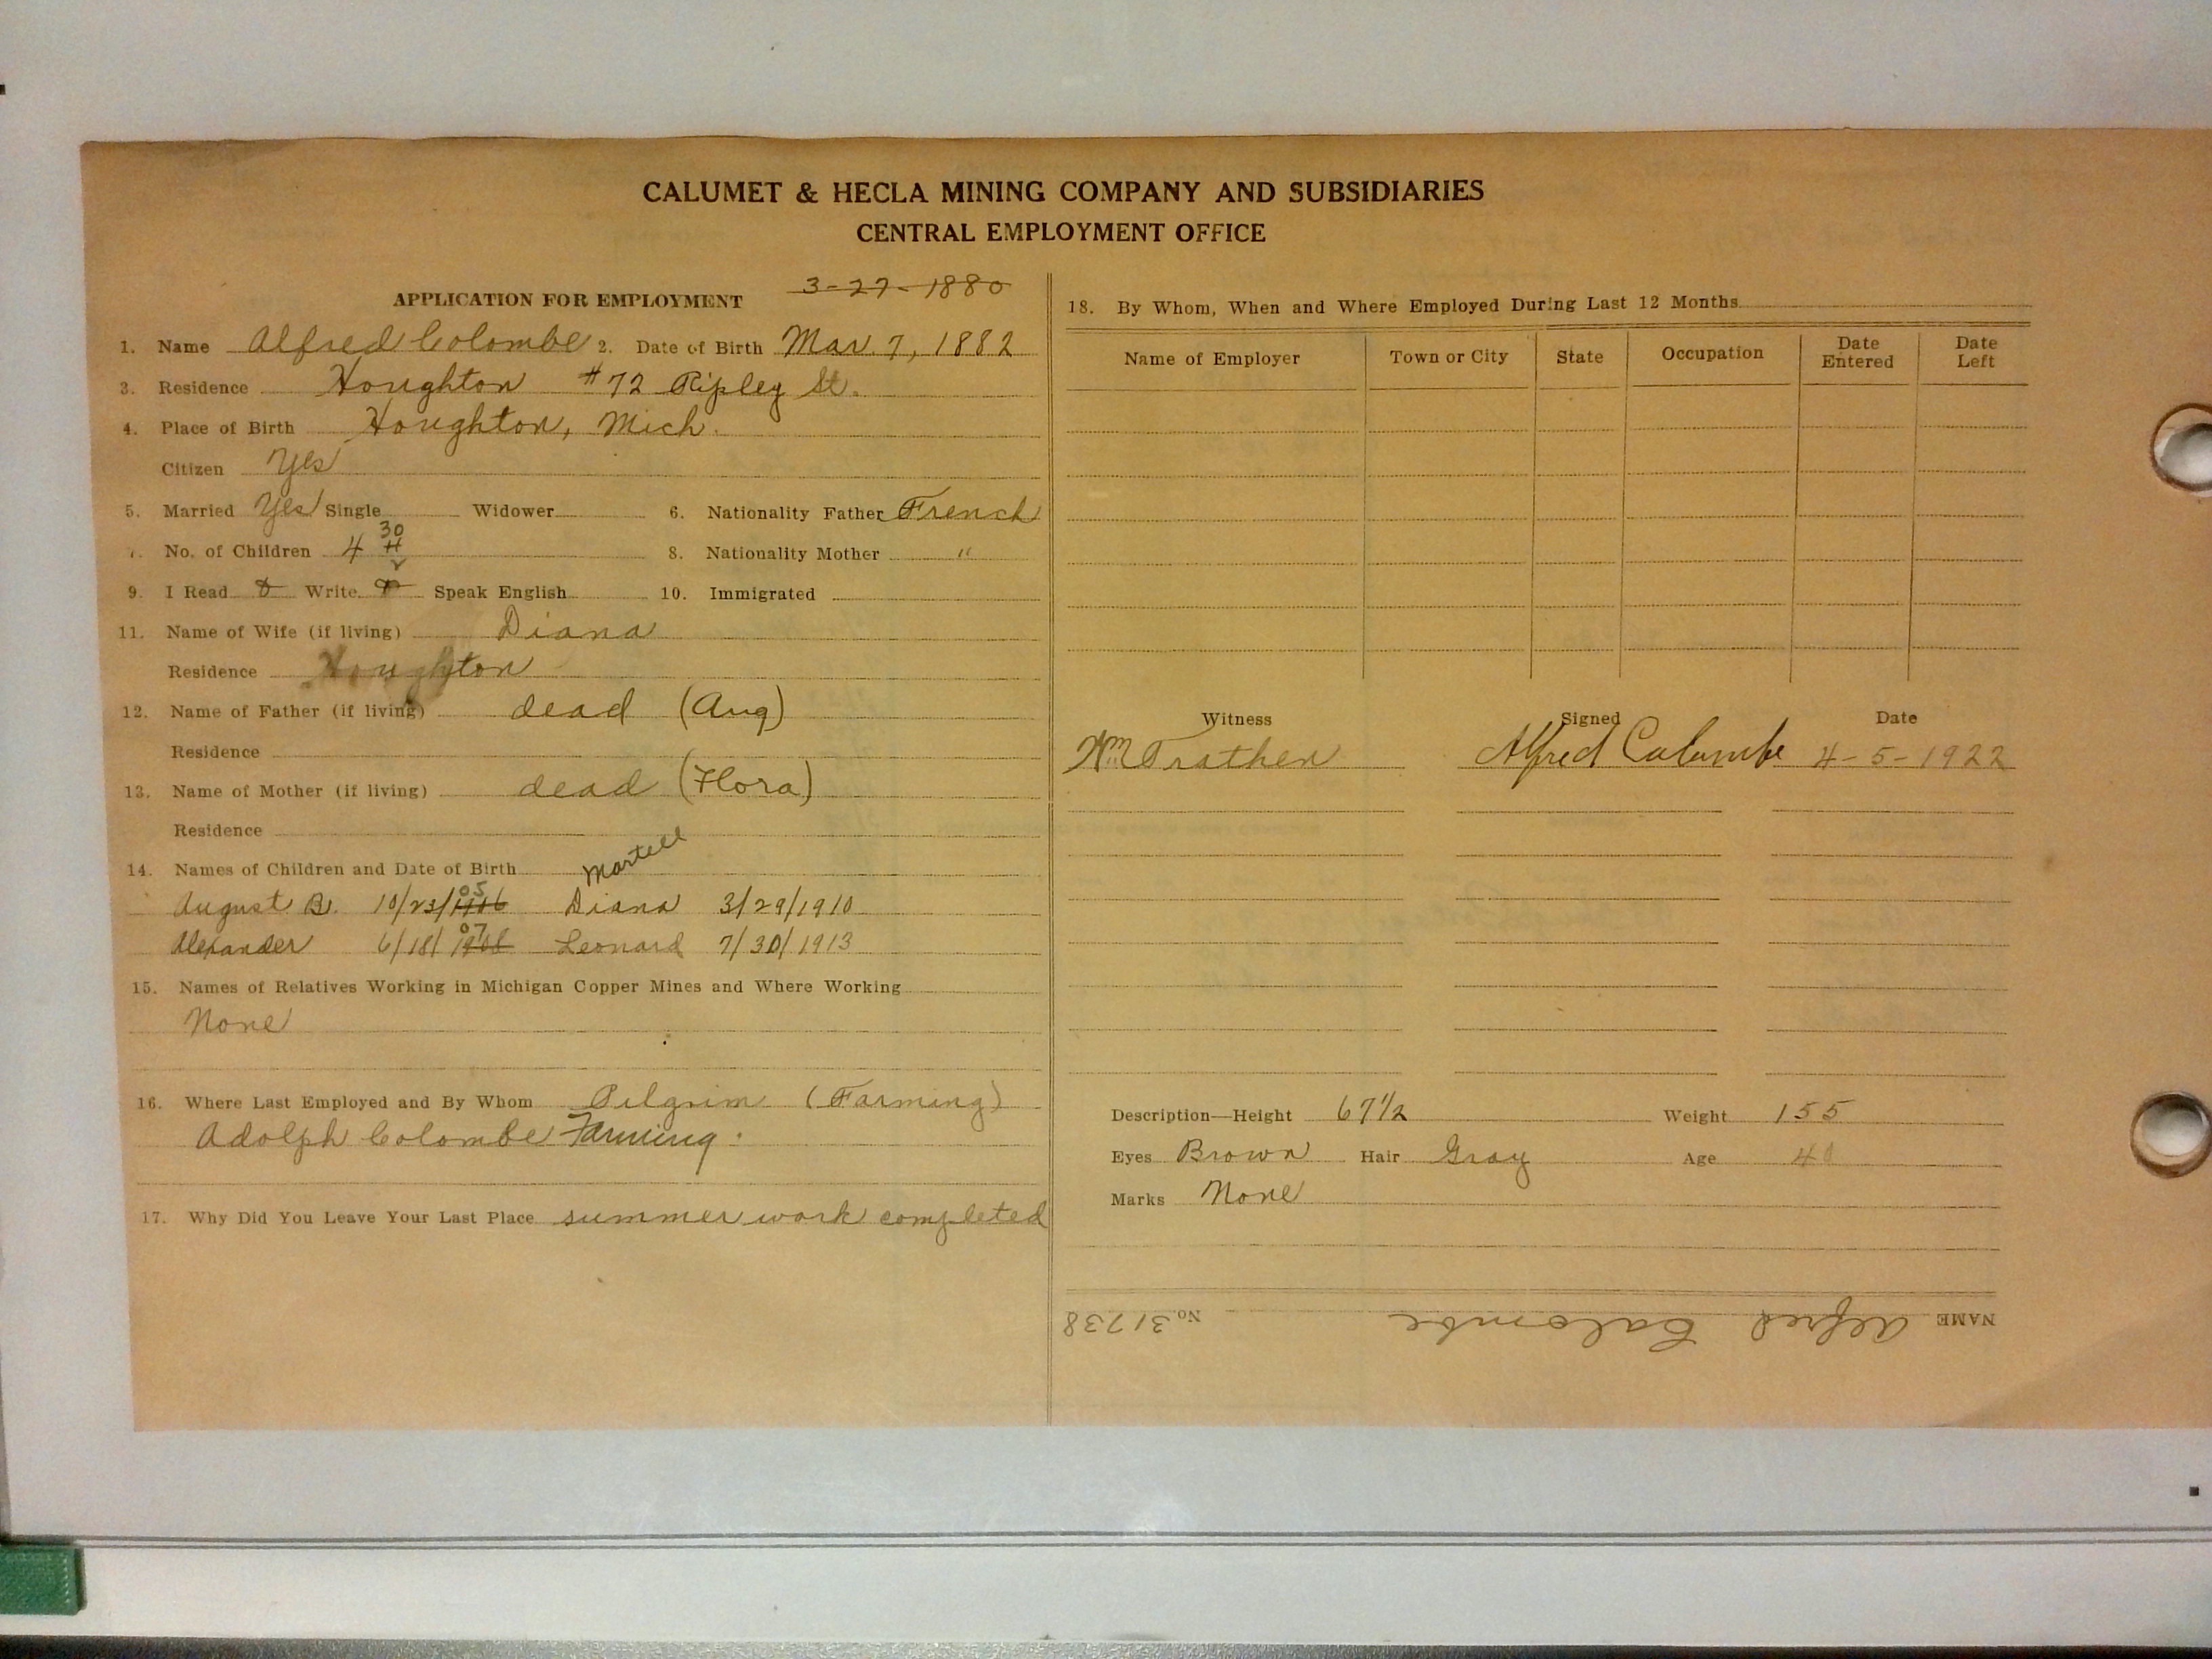 CALUMET & HECLA MINING COMPANY AND SUBSIDIARIES
CENTRAL EMPLOYMENT OFFICE
APPLICATION FOR EMPLOYMENT 3-27-1880
1. Name Alfred Colombe 2. Date of Birth Mar. 7, 1882
3. Residence Houghton #72 Ripley St.
4. Place of Birth Houghton, Mich.
Citizen Yes
5. Married Yes Single Widower 6. Nationality Father French
30
7. No. of Children 4 8. Nationality Mother "
9. I Read Write Speak English 10. Immigrated
11. Name of Wife (if living) Diana
Residence Houghton
12. Name of Father (if living) dead (Aug)
Residence
13. Name of Mother (if living) dead (Flora)
Residence
14. Names of Children and Date of Birth Martell
August B. 10/23/1906 05 Diana 3/29/1910
Alexander 6/18/1908 07 Leonard 7/30/1913
15. Names of Relatives Working in Michigan Copper Mines and Where Working
None
16. Where Last Employed and By Whom Pilgrim (Farming)
Adolph Colombe Farming.
17. Why Did You Leave Your Last Place summer work completed
18. By Whom, When and Where Employed During Last 12 Months
Name of Employer Town or City State Occupation Date Entered Date Left
Witness Signed Date
Wm Trathen Alfred Calumbe 4-5-1922
Description—Height 67 1/2 Weight 155
Eyes Brown Hair Gray Age 40
Marks None
NAME Alfred Calombe No. 31738